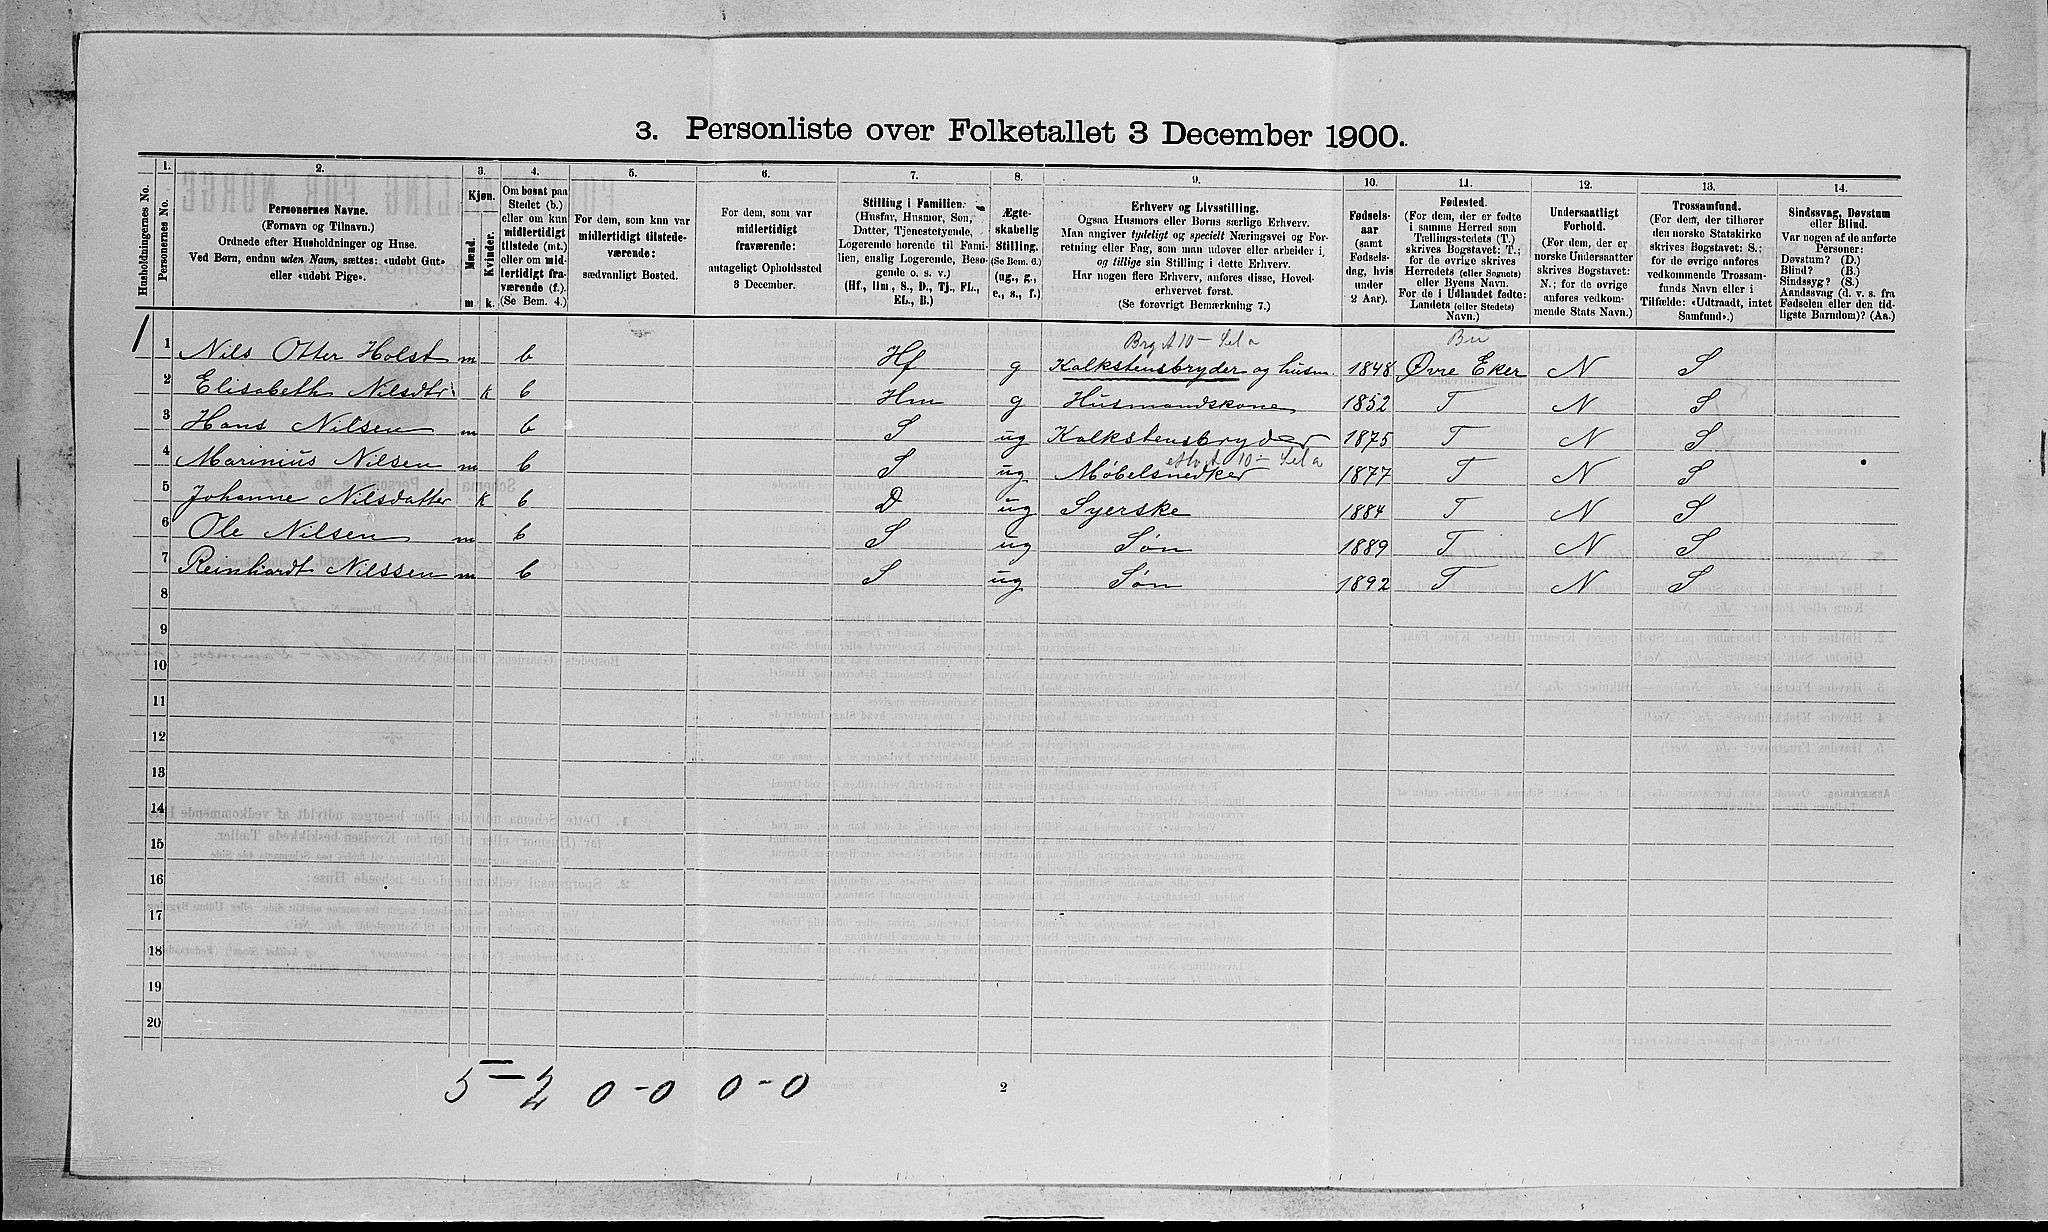 3. Personliste over Folketallet 3 December 1900.
Husholdningernes No.
1.
Personernes No.
2.
Personernes Navne.
(Fornavn og Tilnavn.)
Ordnede efter Husholdninger og Huse.
Ved Børn, endnu uden Navn, sættes: «udøbt Gut»
eller «udøbt Pige».
3.
Kjøn.
Mænd.
Kvinder.
m
k.
4.
Om bosat paa
Stedet (b.)
eller om kun
midlertidigt
tilstede (mt.)
eller om mid-
lertidigt fra-
værende (f.)
(Se Bem. 4.)
5.
For dem, som kun var
midlertidigt tilstede-
værende:
sædvanligt Bosted.
6.
For dem, som var
midlertidigt
fraværende:
antageligt Opholdssted
3 December.
7.
Stilling i Familien.
(Husfar, Husmor, Søn,
Datter, Tjenestetyende,
Logerende hørende til Fami-
lien, enslig Logerende, Besø-
gende o. s. v.)
(Hf., Hm, S., D., Tj., FL.,
EL., B.)
8.
Ægte-
skabelig
Stilling.
(Se Bem. 6.)
(ug., g.,
e., s., f.)
9.
Erhverv og Livsstilling.
Ogsaa Husmors eller Børns særlige Erhverv.
Man angiver tydeligt og specielt Næringsvei og For-
retning eller Fag, som man udøver eller arbeider i,
og tillige sin Stilling i dette Erhverv.
Har nogen flere Erhverv, anføres disse, Hoved-
erhvervet først.
(Se forøvrigt Bemærkning 7.)
10.
Fødsels-
aar
(samt
Fødsels-
dag, hvis
under
2 Aar).
11.
Fødested.
(For dem, der er fødte
i samme Herred som
Tællingsstedets (T.)
skrives Bogstavet: T.;
for de øvrige skrives
Herredets (eller Sognets)
eller Byens Navn.
For de i Udlandet fødte:
Landets (eller Stedets)
Navn.)
12.
Undersaatligt
Forhold.
(For dem, der er
norske Undersaatter
skrives Bogstavet:
N.; for de øvrige
anføres vedkom-
mende Stats Navn.)
13.
Trossamfund.
(For dem, der tilhører
den norske Statskirke
skrives Bogstavet: S.;
for de øvrige anføres
vedkommende Trossam-
funds Navn eller i
Tilfælde: «Udtraadt, intet
Samfund».)
14.
Sindssvag, Døvstum
eller Blind.
Var nogen af de anførte
Personer:
Døvstum? (D.)
Blind? (B.)
Sindssyg? (S.)
Aandssvag (d. v. s. fra
Fødselen eller den tid-
ligste Barndom)? (Aa.)
1 1 Nils Otter Holst m b Hf g Kalkstensbryder og husm. 1848 Øvre Eker N S
2 Elisabeth Nilsdtr. k b Hm g Husmandskone 1852 T N S
3 Hans Nilsen m b S ug Kalkstensbryder 1875 T N S
4 Marinius Nilsen m b S ug Møbelsnedker 1877 T N S
5 Johanne Nilsdatter k b D ug Syerske 1884 T N S
6 Ole Nilsen m b S ug Søn 1889 T N S
7 Reinhardt Nilssen m b S ug Søn 1892 T N S
8
9
10
11
12
13
14
15
16
17
18
19
20
5-2 0-0 0-0
2